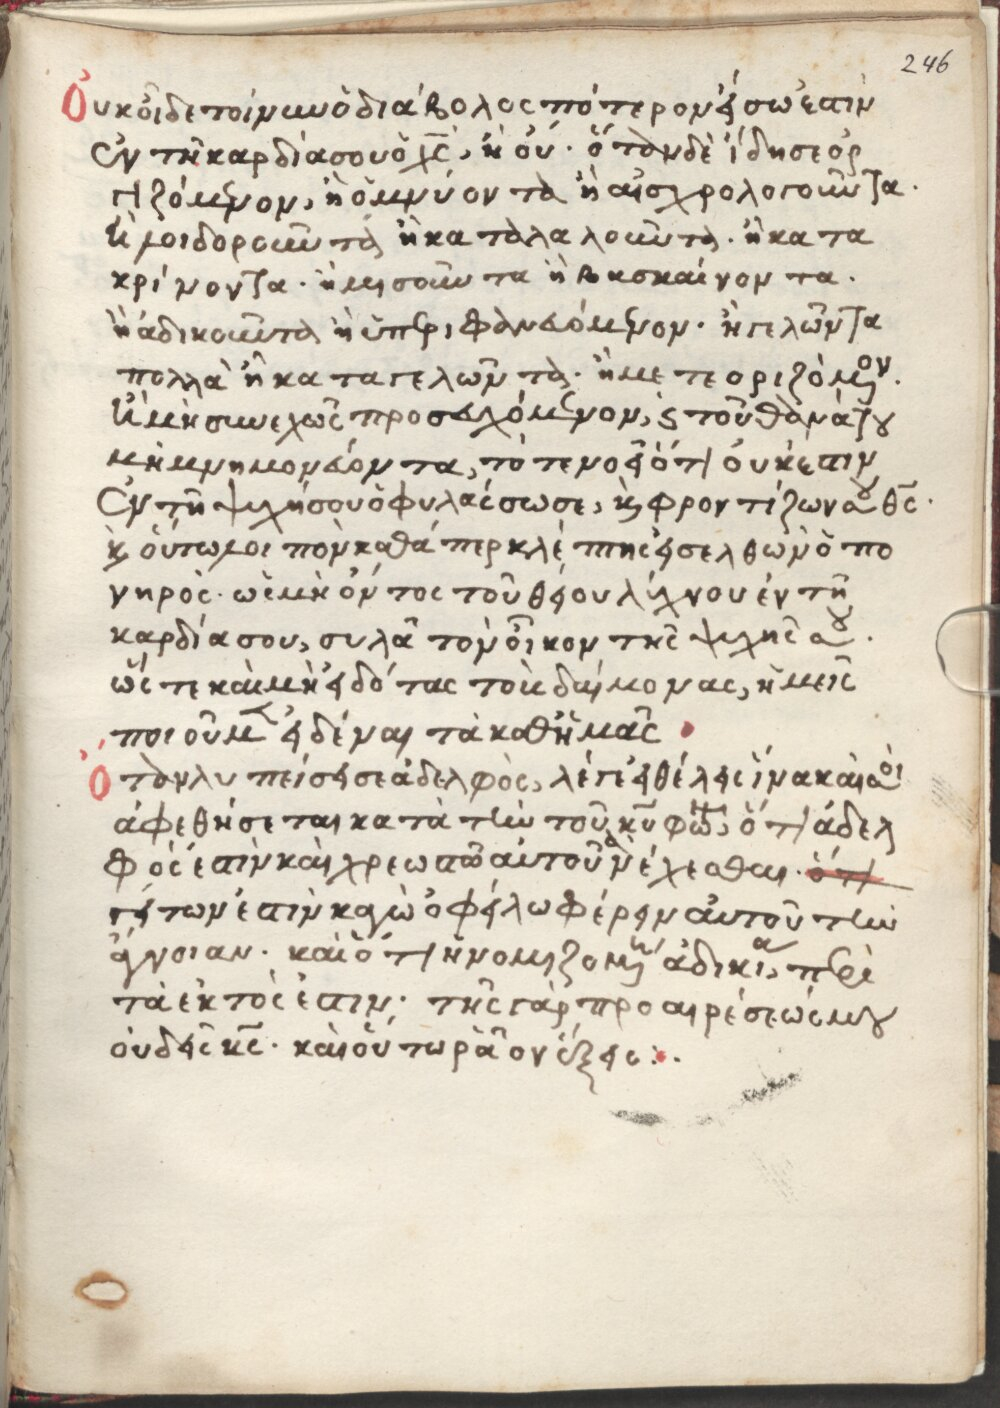 246
Οὐκ οἶδε τοίνυν ὁ διάβολος πότερον ἔσω ἐστὶν
ἐν τῆ καρδία σου ὁ χς, ἢ οὐ· ὅταν δὲ ἴδη σε ὀρ
γιζόμενον, ἢ ὀμνύοντα ἢ αἰσχρολογοῦντα·
ἢ λοιδοροῦντα ἢ καταλαλοῦντα· ἢ κατα
κρίνοντα· ἢ μισοῦντα ἢ βασκαίνοντα·
ἢ ἀδικοῦντα ἢ ὑπερηφανευόμενον· ἢ γελῶντα
πολλὰ ἢ καταγελῶντα· ἢ μετεοριζόμενον·
ἢ μὴ συνεχῶς προσευχόμενον, καὶ τοῦ θανάτου
μὴ μνημονεύοντα, τότε νοεῖ ὅτι οὐκ ἔστιν
ἐν τῆ ψυχῆ σου ὁ φυλάσσων σε, καὶ φροντίζων σου θς·
καὶ οὕτω λοιπὸν καθάπερ κλέπτης εἰσελθὼν ὁ πο
νηρὸς· ὡς μὴ ὄντος τοῦ θείου λύχνου ἐν τῆ
καρδία σου, συλᾶ τὸν οἶκον τῆς ψυχῆς σου·
ὥς τε καὶ μὴ εἰδότας τοὺς δαίμονας, ἡμεῖς
ποιοῦμεν εἰδέναι τὰ καθ ἡμᾶς
Ὅταν λυπείσει σε ἀδελφὸς, λέγε εἰ θέλεις ἵνα καί σοι
ἀφεθήσεται κατὰ τὴν τοῦ κυ φωνὴν, ὅτι ἀδελ
φός ἐστιν καὶ χρεωστῶ αὐτοῦ ἀνέχεσθαι· ὅτι
γείτων ἐστὶν καγὼ ὀφείλω φέρειν αὐτοῦ τὴν
ἄγνοιαν· καὶ ὅτι ἡ νομιζομένη ἀδικία, περὶ
τὰ ἐκτός ἐστιν· τῆς γὰρ προαιρέσεώς μου
οὐδεὶς κς· καὶ οὕτω ρᾶον ἕξεις